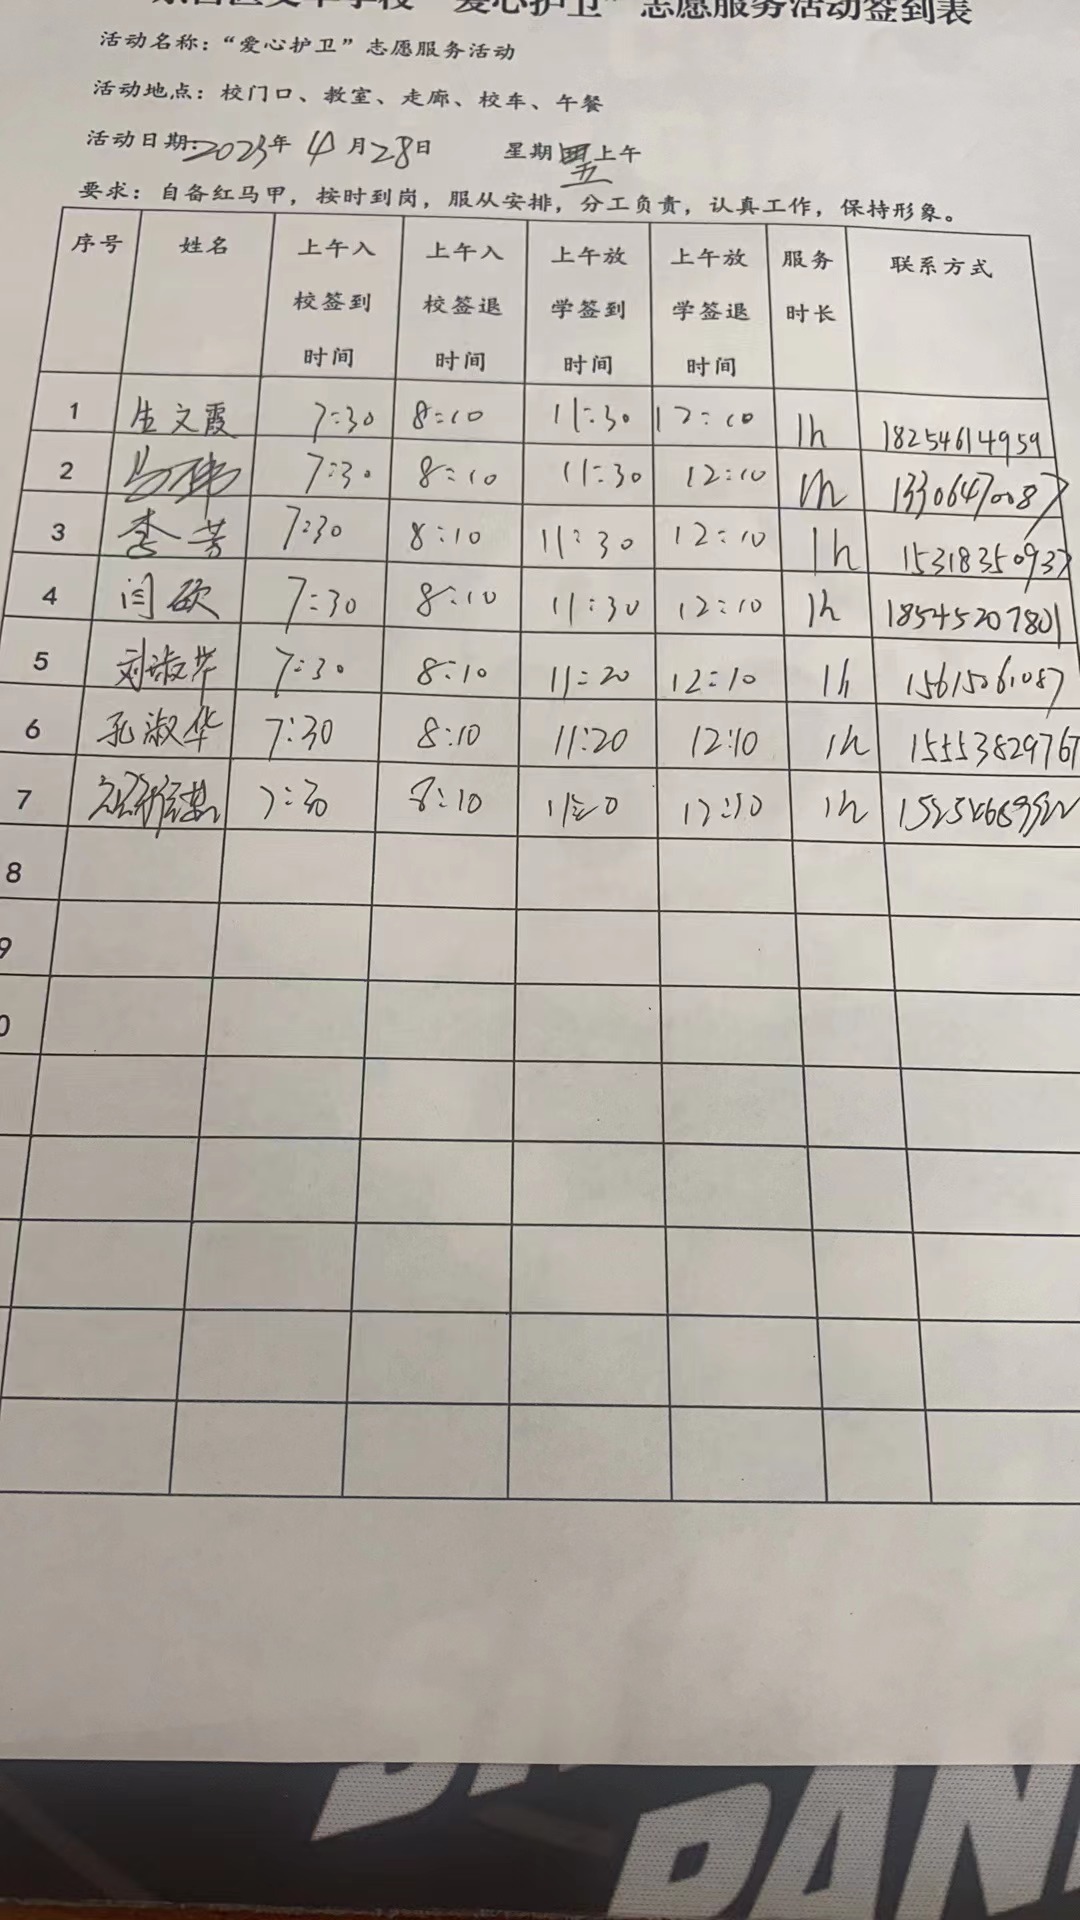 "爱心护卫"志愿服务活动签到表
活动名称：“爱心护卫”志愿服务活动
活动地点：校门口、教室、走廊、校车、午餐
活动日期：2023年 4月28日 星期五上午
要求：自备红马甲，按时到岗，服从安排，分工负责，认真工作，保持形象。
序号 姓名 上午入校签到时间 上午入校签退时间 上午放学签到时间 上午放学签退时间 服务时长 联系方式
1 生文霞 7:30 8:10 11:30 12:10 1h 18254614959
2 7:30 8:10 11:30 12:10 1h 13306470087
3 李芳 7:30 8:10 11:30 12:10 1h 15318350937
4 闫欣 7:30 8:10 11:30 12:10 1h 18545207801
5 刘淑华 7:30 8:10 11:20 12:10 1h 15615061087
6 孔淑华 7:30 8:10 11:20 12:10 1h 15553829767
7 7:30 8:10 12:10 1h
8
9
0